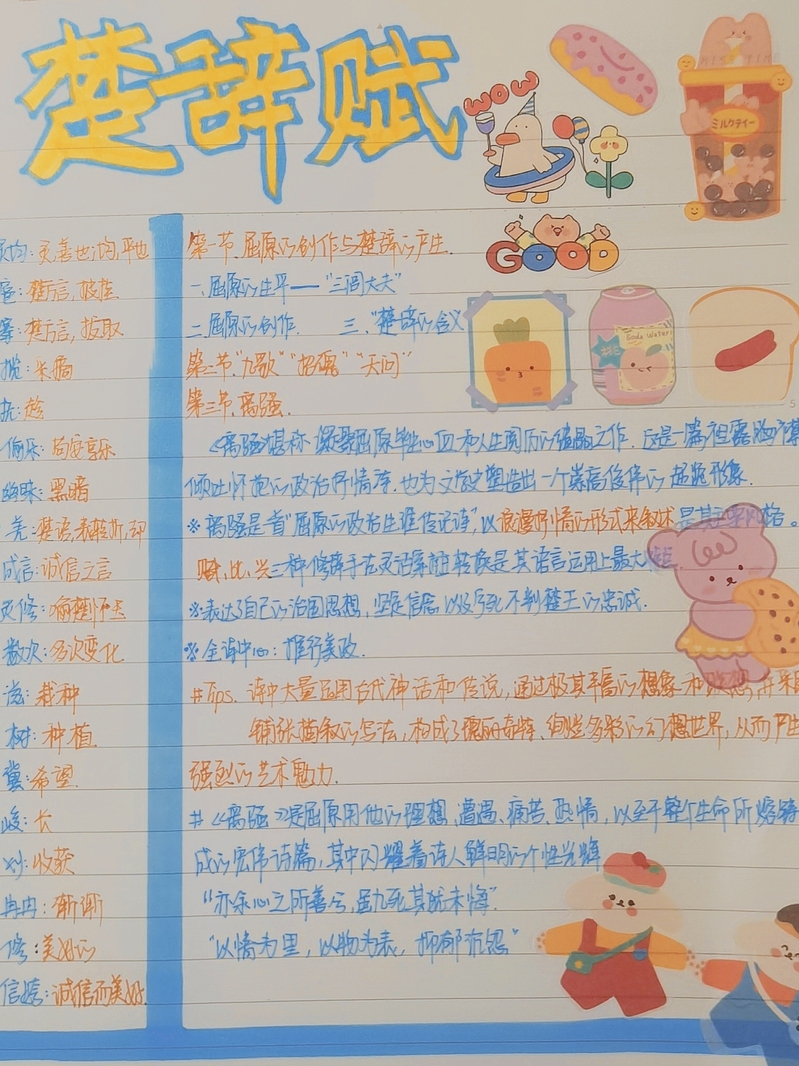 楚辞赋
WOW
GOOD
ミルクティー
Soda Water
灵均:灵善也;均,平也
楚方言,披挂
搴:楚方言,拔取
揽:采摘
抗:
偷乐:苟安享乐
幽昧:黑暗
羌:楚语,表转折,却
成言:诚信之言
灵修:喻楚怀王
数次:多次变化
滋:栽种
树:种植
冀:希望
峻:长
刈:收获
冉冉:渐渐
修:美好的
信姱:诚信而美好
第一节.屈原的创作与楚辞的产生.
一.屈原的生平——“三闾大夫”
二.屈原的创作. 三.“楚辞”的含义
第二节“九歌”“招魂”“天问”
第三节.离骚.
《离骚》堪称凝聚屈原毕生心血和人生阅历的结晶之作.它是一篇袒露胸襟
倾吐怀抱的政治抒情诗.也为文学史塑造出一个崇高俊伟的超越形象.
※离骚是首“屈原的政治生涯传记诗”,以浪漫抒情的形式来叙述是其主要风格。
赋、比、兴三种修辞手法灵活穿插转换是其语言运用上最大
※表达了自己的治国思想,坚定信念以及与死不判楚王的忠诚.
※全诗中心:推行美政.
#Tips.诗中大量运用古代神话和传说,通过极其丰富的想象和联想,并采用
铺张描叙的写法,构成了瑰丽奇特、绚烂多彩的幻想世界,从而产生
强烈的艺术魅力.
#《离骚》是屈原用他的理想、遭遇、痛苦、热情,以至于整个生命所熔铸
成的宏伟诗篇,其中闪耀着诗人鲜明的个性光辉
“亦余心之所善兮,虽九死其犹未悔”
“以情为里,以物为表,抑郁沉怨”